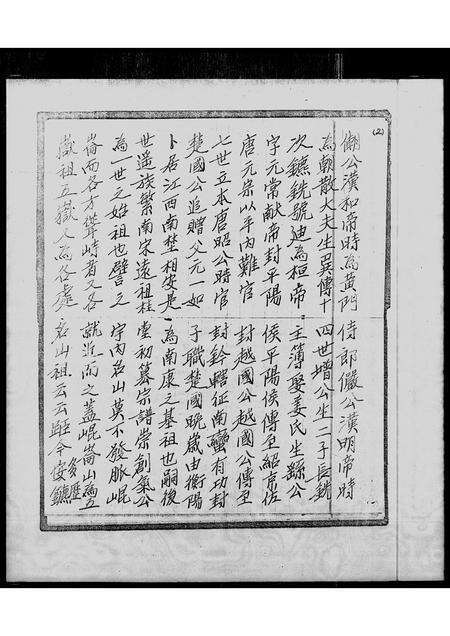 (2)
備公漢和帝時為黃門侍郎儼公漢明帝時
為朝散大夫生巽傳十四世增公生二子長銑
次鑣銑號迪為桓帝主簿娶姜氏生繇公
字元常献帝封平陽侯平陽侯傳至紹京佐
唐元宗以平內難官封越國公越國公傳至
七世立本唐昭公時官封鈐轄征南蠻有功封
楚國公追贈父元一如子職楚國晚歲由衡陽
卜居江西南埜相安是為南康之基祖也嗣後
世遠族繁南宋遠祖桂堂初纂宗譜崇創集公
為一世之始祖也譬之宇內名山莫不發脈崐
崙而各方聳峙者又各就近而之蓋崐崙山為五
嶽祖五嶽人為各處名山祖云云今安鑣多歷